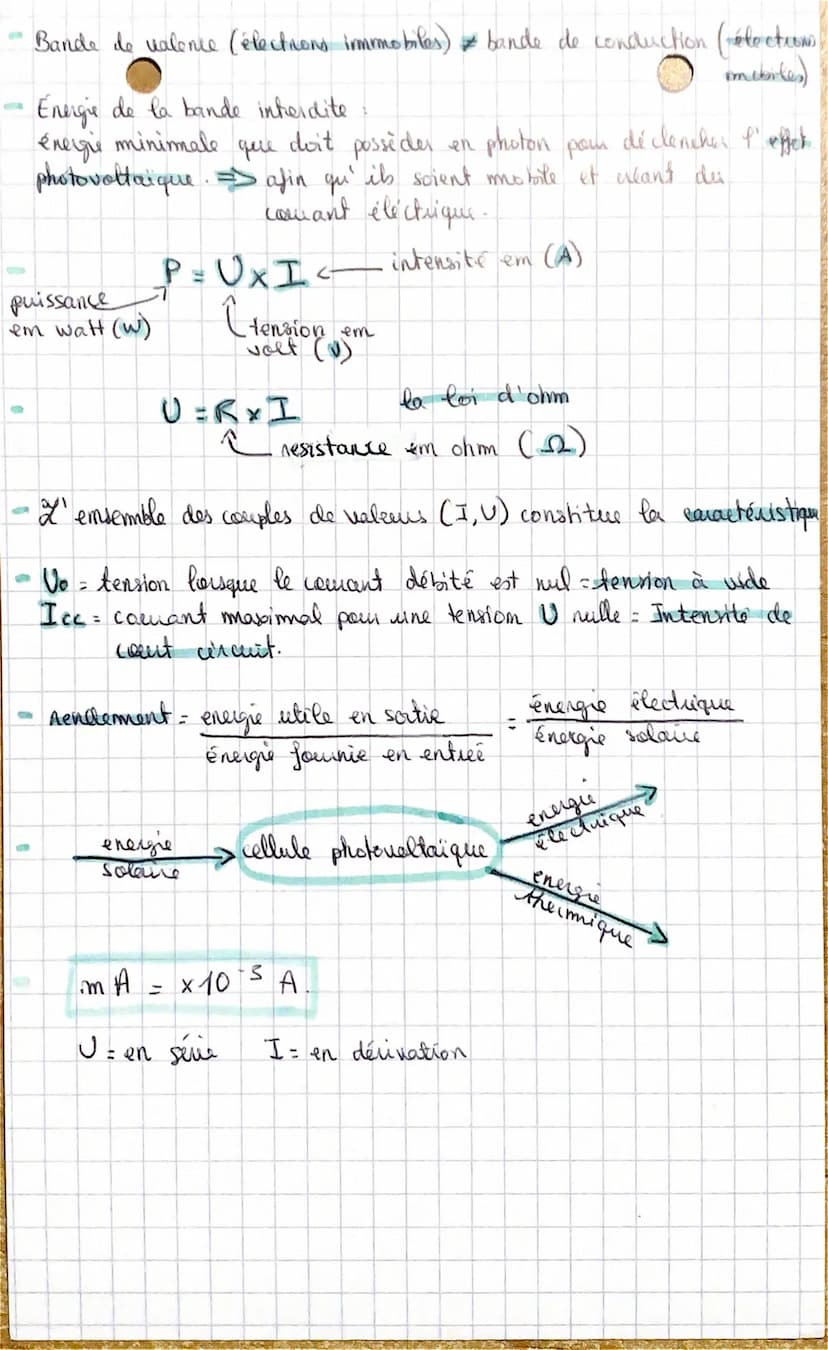 - Bande de valence (électrons immobiles) ≠ bande de conduction (électrons
mobiles)
- Énergie de la bande interdite :
énergie minimale que doit possèder en photon pour déclencher l'effet
photovoltaïque. => afin qu'ils soient mobile et créant du
courant éléctrique.
- P = U x I ← intensité em (A)
puissance
em watt (W)
tension em
volt (V)
- U = R x I la loi d'ohm
resistance em ohm (Ω)
- L'ensemble des couples de valeurs (I,U) constitue la caractéristique
- U₀ = tension lorsque le courant débité est nul = tension à vide
Icc = courant maximal pour une tension U nulle = Intensité de
court circuit.
- rendement = energie utile en sortie / énergie fournie en entreé = énergie électrique / énergie solaire
- energie solaire → cellule photovoltaïque
energie électrique
energie thermique
- mA = x10⁻³ A.
U = en série I = en dérivation